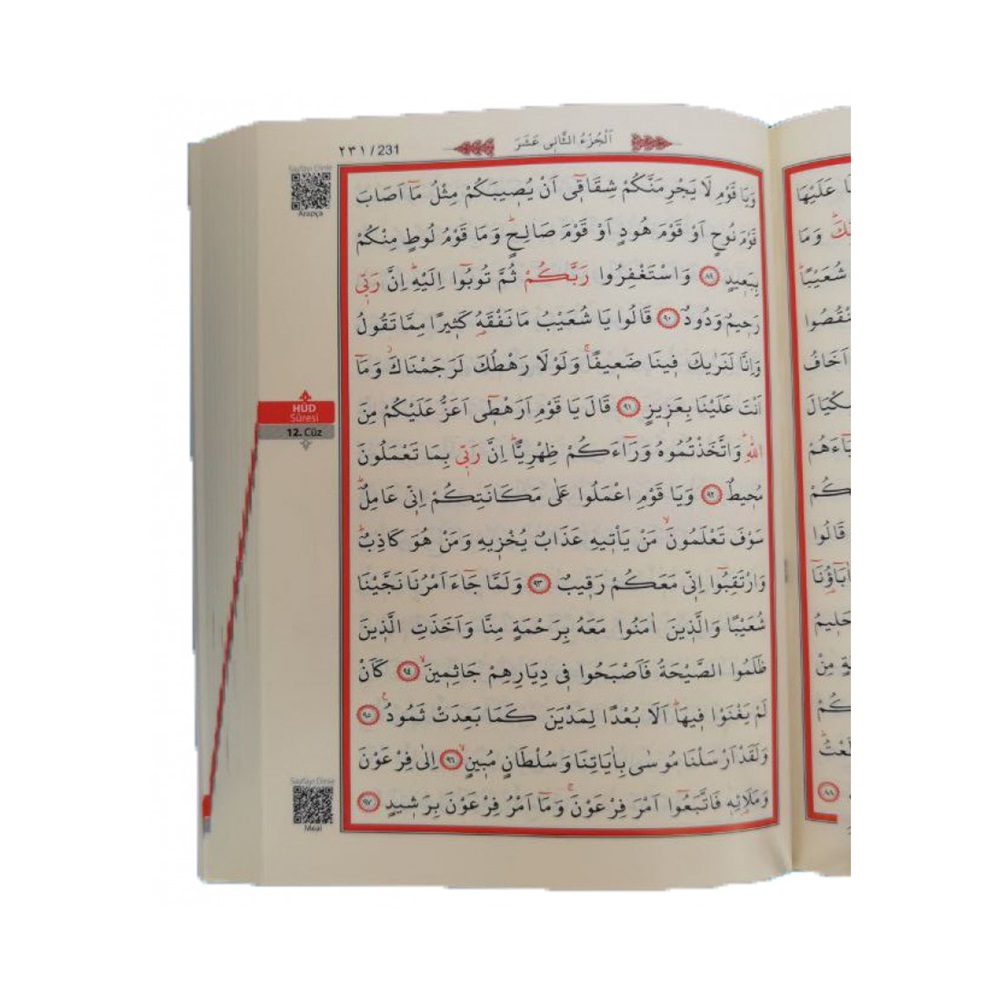 اَلْجُزْءُ الثَّانِى عَشَرَ
٢٣١ / 231
وَيَا قَوْمِ لَا يَجْرِمَنَّكُمْ شِقَاقٖٓى اَنْ يُصٖيبَكُمْ مِثْلُ مَٓا اَصَابَ
قَوْمَ نُوحٍ اَوْ قَوْمَ هُودٍ اَوْ قَوْمَ صَالِحٍؕ وَمَا قَوْمُ لُوطٍ مِنْكُمْ
بِبَعٖيدٍ ٨٩ وَاسْتَغْفِرُوا رَبَّكُمْ ثُمَّ تُوبُٓوا اِلَيْهِؕ اِنَّ رَبّٖى
رَحٖيمٌ وَدُودٌ ٩٠ قَالُوا يَا شُعَيْبُ مَا نَفْقَهُ كَثٖيرًا مِمَّا تَقُولُ
وَاِنَّا لَنَرٰيكَ فٖينَا ضَعٖيفًاۚ وَلَوْلَا رَهْطُكَ لَرَجَمْنَاكَؗ وَمَٓا
اَنْتَ عَلَيْنَا بِعَزٖيزٍ ٩١ قَالَ يَا قَوْمِ اَرَهْطٖٓى اَعَزُّ عَلَيْكُمْ مِنَ
اللّٰهِؕ وَاتَّخَذْتُمُوهُ وَرَٓاءَكُمْ ظِهْرِيًّاؕ اِنَّ رَبّٖى بِمَا تَعْمَلُونَ
مُحٖيطٌ ٩٢ وَيَا قَوْمِ اعْمَلُوا عَلٰى مَكَانَتِكُمْ اِنّٖى عَامِلٌؕ
سَوْفَ تَعْلَمُونَۙ مَنْ يَأْتٖيهِ عَذَابٌ يُخْزٖيهِ وَمَنْ هُوَ كَاذِبٌؕ
وَارْتَقِبُٓوا اِنّٖى مَعَكُمْ رَقٖيبٌ ٩٣ وَلَمَّا جَٓاءَ اَمْرُنَا نَجَّيْنَا
شُعَيْبًا وَالَّذٖينَ اٰمَنُوا مَعَهُ بِرَحْمَةٍ مِنَّا وَاَخَذَتِ الَّذٖينَ
ظَلَمُوا الصَّيْحَةُ فَاَصْبَحُوا فٖى دِيَارِهِمْ جَاثِمٖينَۙ ٩٤ كَاَنْ
لَمْ يَغْنَوْا فٖيهَاؕ اَلَا بُعْدًا لِمَدْيَنَ كَمَا بَعِدَتْ ثَمُودُۚ ٩٥
وَلَقَدْ اَرْسَلْنَا مُوسٰى بِاٰيَاتِنَا وَسُلْطَانٍ مُبٖينٍۙ ٩٦ اِلٰى فِرْعَوْنَ
وَمَلَا۬ئِهٖ فَاتَّبَعُٓوا اَمْرَ فِرْعَوْنَۚ وَمَٓا اَمْرُ فِرْعَوْنَ بِرَشٖيدٍ ٩٧
Sayfayı Dinle
Arapça
HÛD
Sûresi
12. Cüz
Sayfayı Dinle
Meal
عَلَيْهَا
وَمَا
شُعَيْبًاؕ
اَخَافُ
قَالُوا
٨٨